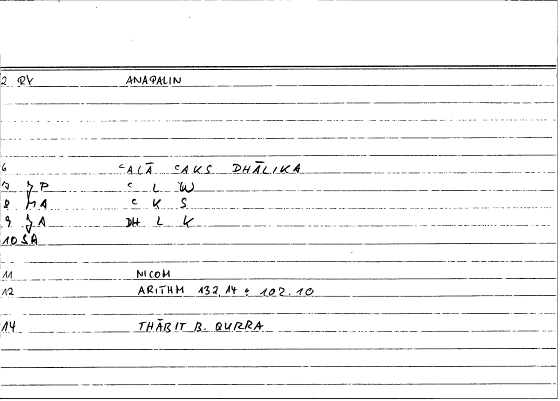 2 RY ANAPALIN
6 ʿALĀ ʿAKS DHĀLIKA
7 ʒP ʿ L W
8 MA ʿ K S
9 ʒA DH L K
10 SA
11 NICOM
12 ARITHM 132,14 : 102.10
14 THĀBIT B. QURRA